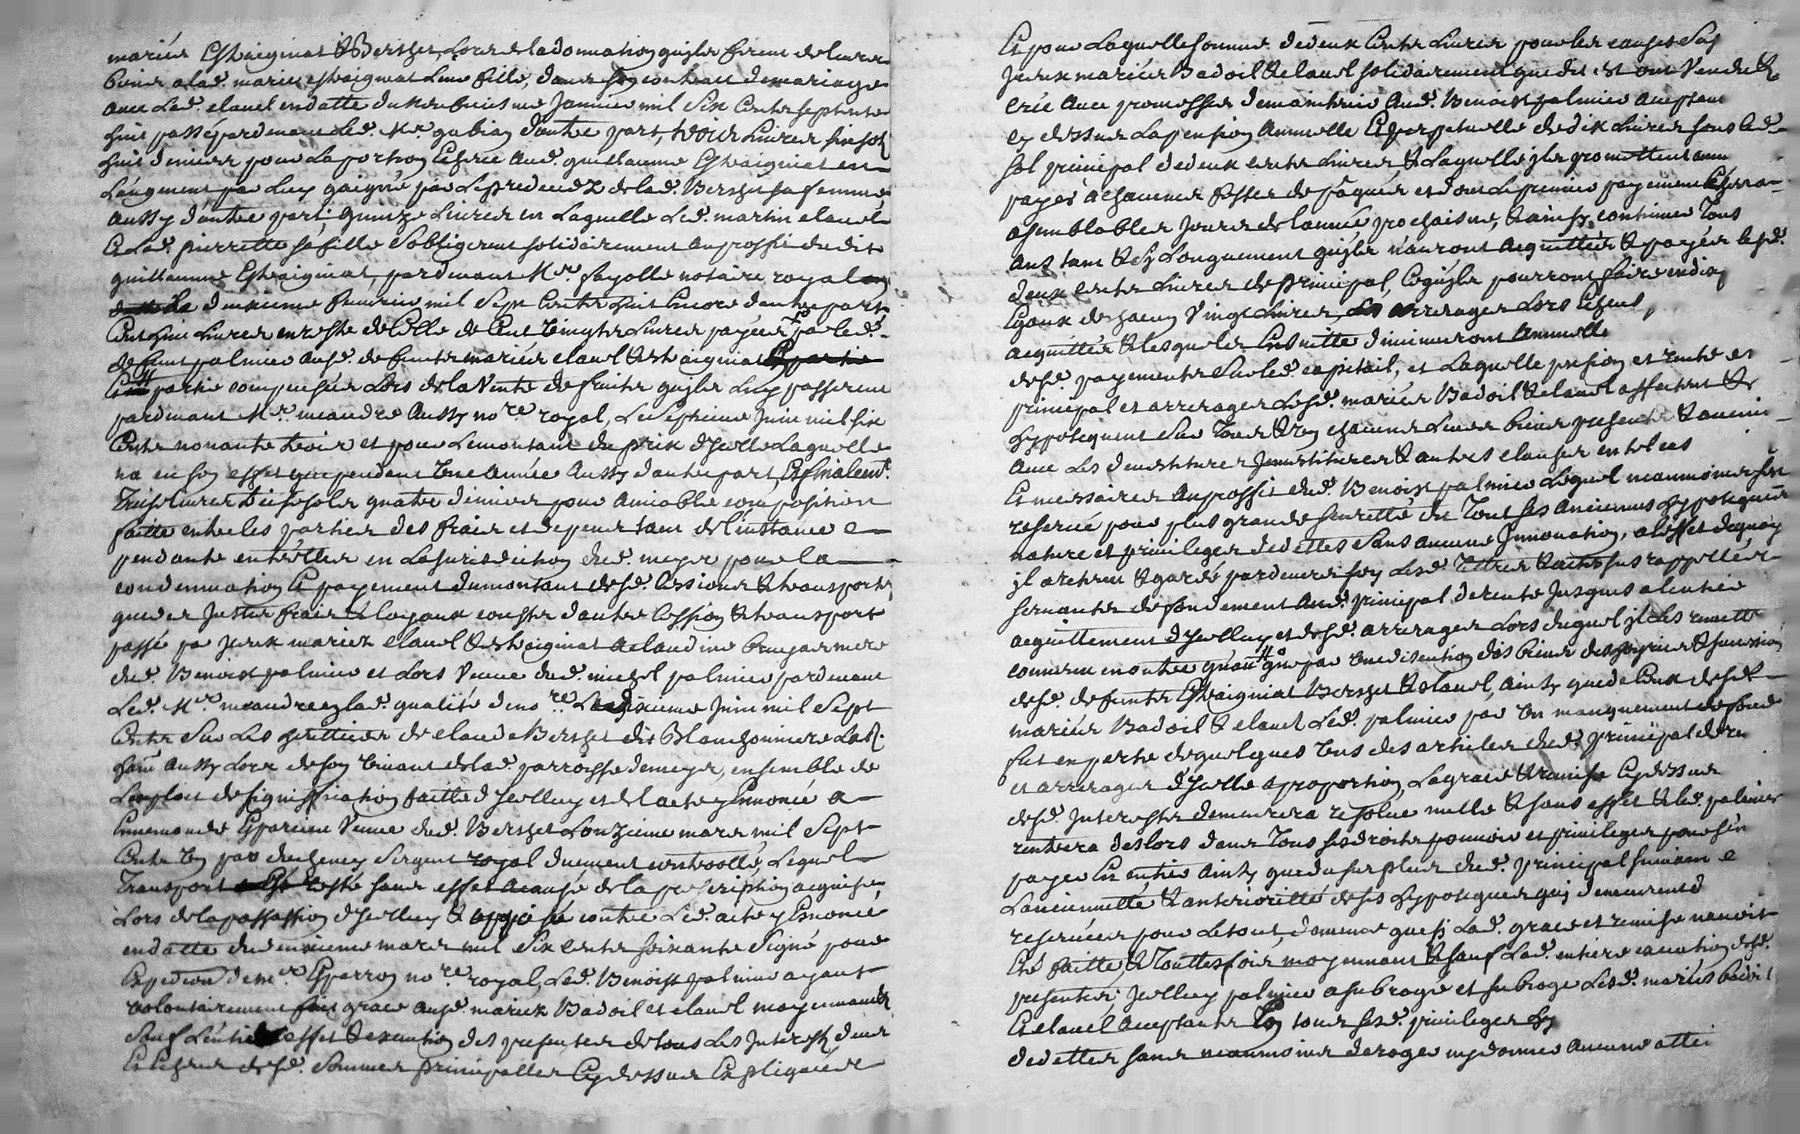 mariés Estraigniat & Berthet Lors de la donnation quils firent de leurs
biens a lad. marie estraigniat leur fille, dans son contract de mariage
avec led. clavel en datte du Janvier mil six cents septante
huit passé pardevant led. Mr. gubian d'autre part, trois Livres six sols
huit deniers pour la portion aud. guillaume Estraigniat en
L'augment par luy gaigné par le predecedz de lad. Berthet sa femme
aussy d'autre part; quinze Livres en Laquelle Led. martin clavel
& lad. pierrette sa fille s'obligerent solidairement au proffit dudit
guillaume Estraigniat, pardevant Mr. fayolle notaire royal
deuxieme feurier mil sept cents huit Encore d'autre part
Livres en reste de Celle de Cent vingts Livres payées par led.
deffunt palmier ausd. deffunts mariés clavel & estraigniat
partie compensée Lors de la vente de fruits quils Luy passerent
pardevant Mr. meandre Aussy nore. royal, Le septieme Juin mil six
Cents nonante trois et pour Le montant du prix d'Icelle Laquelle
n'a eu son effet que pendant une Année Aussy d'autre part, & finalemt.
Livres dix sols quatre deniers pour amiable composition
faitte entre les partier des fraix et depens tant de l'instance
pendante entr'elles en La Jurisdiction dud. meys pour la
condemnation & payement du montant desd. cessions & transports
que des Justes fraix & loyaux cousts d'autre Cession & transport
passé par Jceux mariez clavel & estraigniat a claudine mere
dud. Benoist palmier et Lors veuve dud. michel palmier pardevant
Led. Mre. meandre en lad. qualité de nore. Le dixieme Juin mil sept
Cents sur Les heritiers de claude Berthet dit Blanchonniere
aussy Lors de son vivant de lad. parroisse de meys, ensemble de
L'exploit de signiffication faitte d'Jcelluy et de l'acte y Ennoncé a
Ennemonde veuve dud. Berthet L'onzieme mars mil sept
Cents un par sergent royal duement controollé, Lequel
Transport resté sans effet acause de la prescription acquise
Lors de la passation d'Jcelluy & opposée contre Led. acte y Ennoncé
en datte du deuxieme mars mil six cents soixante signé pour
Expedition de mr. nore. royal, Led. Benoist palmier ayant
volontairement fait grace ausd. mariez Badoil et clavel moyennant &
sauf L'entier effet & execution des presentes de tous Les Jnterests deus
& Echeus desd. sommes principalles Cy dessus Expliquées
Et pour Laquelle somme de deux Cents Livres pour les causes
Jceux mariés Badoil & clavel solidairement que dit est ont vendu &
créé avec promesses de maintenir Aud. Benoist palmier acceptant
cy dessus La pension Annuelle & perpetuelle de dix Livres sous led.
sol principal de deux cents Livres & Laquelle Jls promettent
payer a chacunes festes de pâques et dont Le premier payement
a semblables Jours de l'année prochaine, & ainsy continuer tous
ans tant & sy Longuement quils n'auront acquittés & payés lesd.
deux cents Livres de principal, Ce quils pourront faire en dix
Egaux de chacun vingt Livres, Les arrerages Lors Echeus
acquittés & lesquels En suitte diminueront Annuelle
desd. payements sur led. capital, et Laquelle pension et rente et
principal et arrerages Lesd. mariés Badoil & clavel affectent &
hypotequent sur tous & un chacuns Leurs biens presents & avenir
avec Les devestitures Jnvestitures & autres clauses en tel cas
necessaires Au proffit dud. Benoist palmier Lequel neanmoins s'est
reservé pour plus grande seuretté du tout ses anciennes hypoteques
nature et privileges de dettes sans aucune Jnnovation, a l'effet de quoy
Jl a retenu & gardé pardevers soy Lesd. tittres & actes sus rappellés
servants de fondement aud. principal de rente Jusques a l'entier
acquittement d'Jcelluy et desd. arrerages Lors duquel Jl Les remettra
convenu en outre par eviction des biens & succession
desd. deffunts Estraigniat Berthet & clavel, Ainsy que de Ceux desd.
mariés Badoil & clavel Led. palmier par un manquement de fonds
fut en perte de quelques uns des articles dud. principal de rente
et arrerages d'Jcelle a proportion La grace & remise Cy dessus
desd. Jnterests demeurera resolue nulle & sans effet & led. palmier
rentrera des lors dans tous ses droits pouvoir et privileges pour s'en
payer En entier Ainsy que du surplus dud. principal suivant
L'ancienneté & anteriorité de ses hypoteques qui demeurent
reservées pour Le tout, de meme que si Lad. grace et remise n'avoit
Eté faitte & touttesfois moyennant & sauf Lad. entiere execution desd.
presentes Jcelluy palmier a subrogé et subroge Lesd. mariés badoil
& clavel acceptants En tous sesd. privileges
de dettes sans neanmoins deroger ny donner aucune